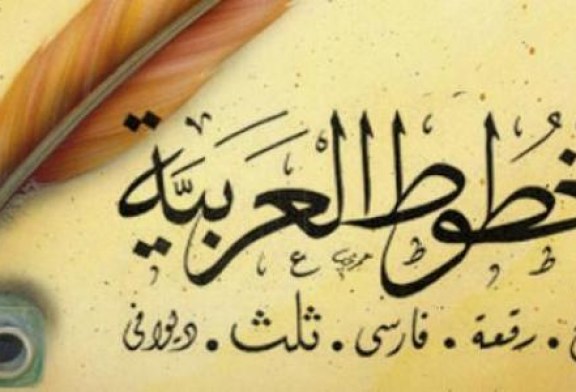 خطوط العربية
. رقعة . فارسى . ثلث . ديوانى